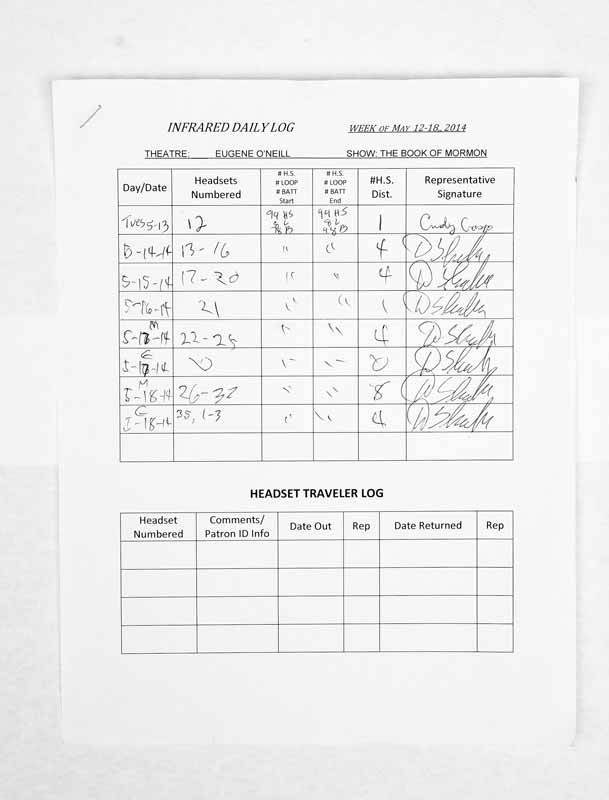 INFRARED DAILY LOG WEEK OF MAY 12-18, 2014
THEATRE: EUGENE O'NEILL SHOW: THE BOOK OF MORMON
Day/Date Headsets Numbered # H.S. # LOOP # BATT Start # H.S. # LOOP # BATT End #H.S. Dist. Representative Signature
Tues 5-13 12 99 HS 8L 98 B 99 HS 8L 98 B 1 Cindy
5-14-14 13-16 " " 4
5-15-14 17-20 " " 4
5-16-14 21 " " 1
M
5-17-14 22-25 " " 4
E
5-17-14 0 " " 0
M
5-18-14 26-32 " " 8
E
5-18-14 35, 1-3 " " 4
HEADSET TRAVELER LOG
Headset Numbered Comments/ Patron ID Info Date Out Rep Date Returned Rep